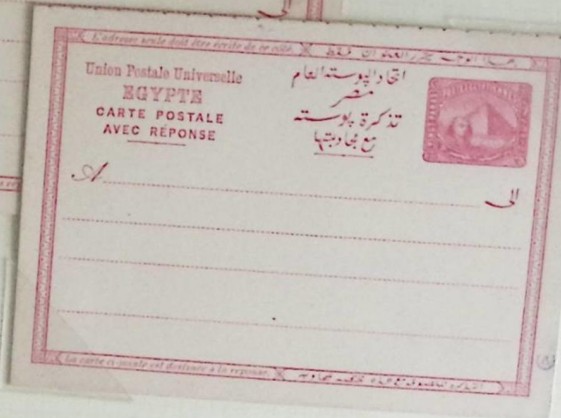 L'adresse seule doit être écrite de ce côté.
Union Postale Universelle
EGYPTE
CARTE POSTALE
AVEC RÉPONSE
اتحاد البوسته العام
مصر
تذكرة بوسته
مع مجاوبتها
A
الى
La carte ci-jointe est destinée à la réponse.